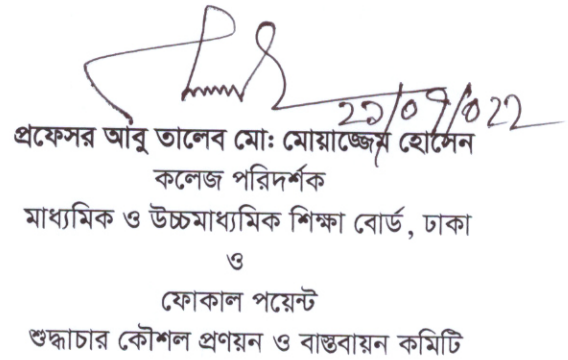 ২১/০৭/২০২২
প্রফেসর আবু তালেব মো: মোয়াজ্জেম হোসেন
কলেজ পরিদর্শক
মাধ্যমিক ও উচ্চমাধ্যমিক শিক্ষা বোর্ড, ঢাকা
ও
ফোকাল পয়েন্ট
শুদ্ধাচার কৌশল প্রণয়ন ও বাস্তবায়ন কমিটি